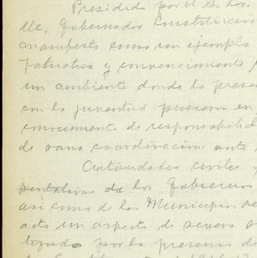 Presidido por el Sr. Dr.
lle, Gobernador Constitucion
manifesto como un ejemplo
Patriótica y convencimiento
un ambiente donde la prese
con la juventud pusieron en
conocimiento de responsabilid
de sana coordinación ante
Autoridades civiles y
sentativas de los Gobiernos
así como de los Municipios de
acto un aspecto de severa so
por la presencia de